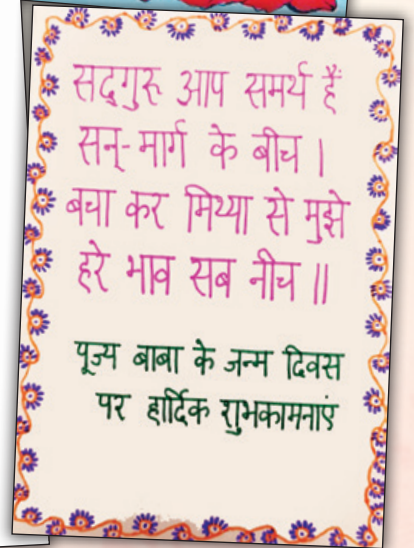 सद्गुरु आप समर्थ हैं
सन्-मार्ग के बीच ।
बचा कर मिथ्या से मुझे
हरे भाव सब नीच ॥
पूज्य बाबा के जन्म दिवस
पर हार्दिक शुभकामनाएं